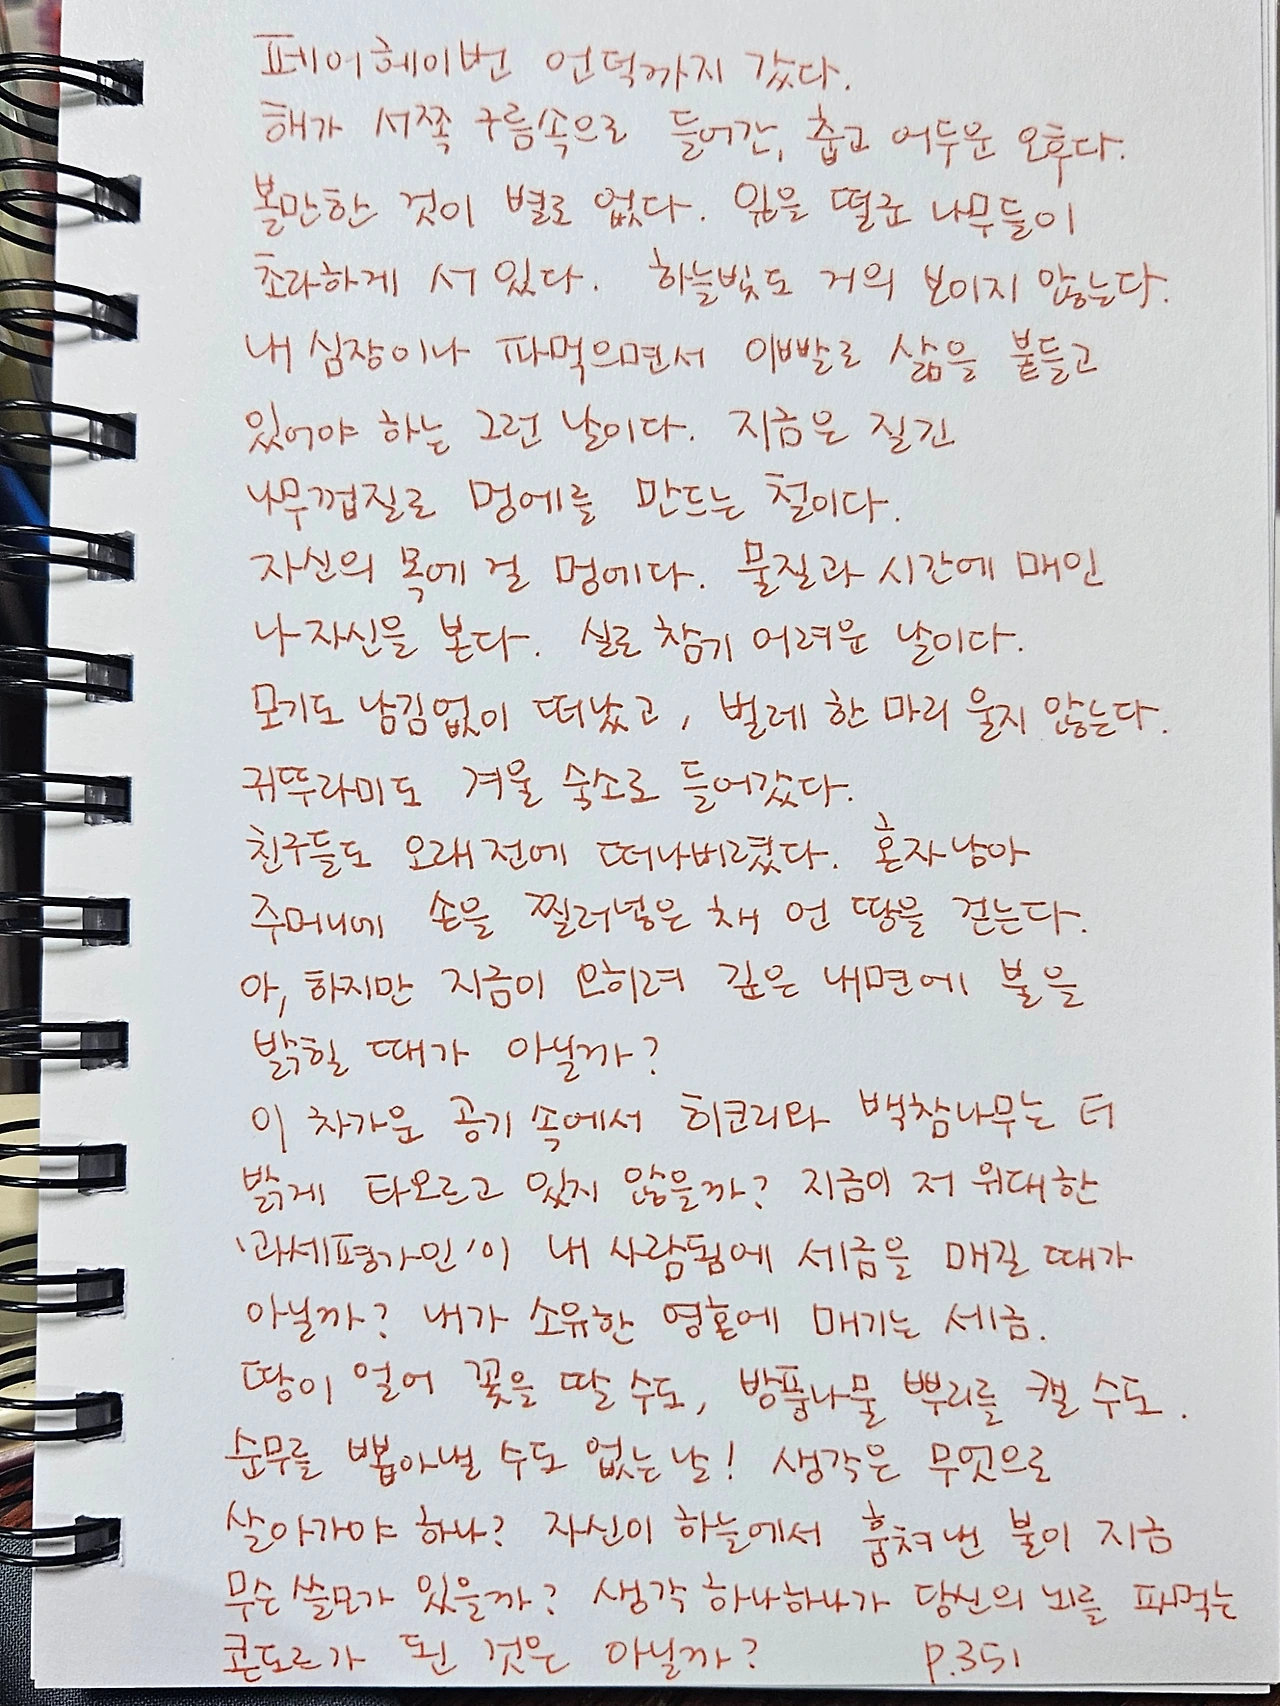 페어헤이번 언덕까지 갔다.
해가 서쪽 구름속으로 들어간, 춥고 어두운 오후다.
볼만한 것이 별로 없다. 잎을 떨군 나무들이
초라하게 서 있다. 하늘빛도 거의 보이지 않는다.
내 심장이나 파먹으면서 이빨로 삶을 붙들고
있어야 하는 그런 날이다. 지금은 질긴
나무껍질로 멍에를 만드는 철이다.
자신의 목에 걸 멍에다. 물질과 시간에 매인
나 자신을 본다. 실로 참기 어려운 날이다.
모기도 남김없이 떠났고, 벌레 한 마리 울지 않는다.
귀뚜라미도 겨울 숙소로 들어갔다.
친구들도 오래전에 떠나버렸다. 혼자 남아
주머니에 손을 찔러넣은 채 언 땅을 걷는다.
아, 하지만 지금이 오히려 깊은 내면에 불을
밝힐 때가 아닐까?
이 차가운 공기 속에서 히코리와 백참나무는 더
밝게 타오르고 있지 않을까? 지금이 저 위대한
'과세평가인'이 내 사람됨에 세금을 매길 때가
아닐까? 내가 소유한 영혼에 매기는 세금.
땅이 얼어 꽃을 딸 수도, 방풍나물 뿌리를 캘 수도.
순무를 뽑아낼 수도 없는 날! 생각은 무엇으로
살아가야 하나? 자신이 하늘에서 훔쳐낸 불이 지금
무슨 쓸모가 있을까? 생각 하나하나가 당신의 뇌를 파먹는
콘도르가 된 것은 아닐까? P.351